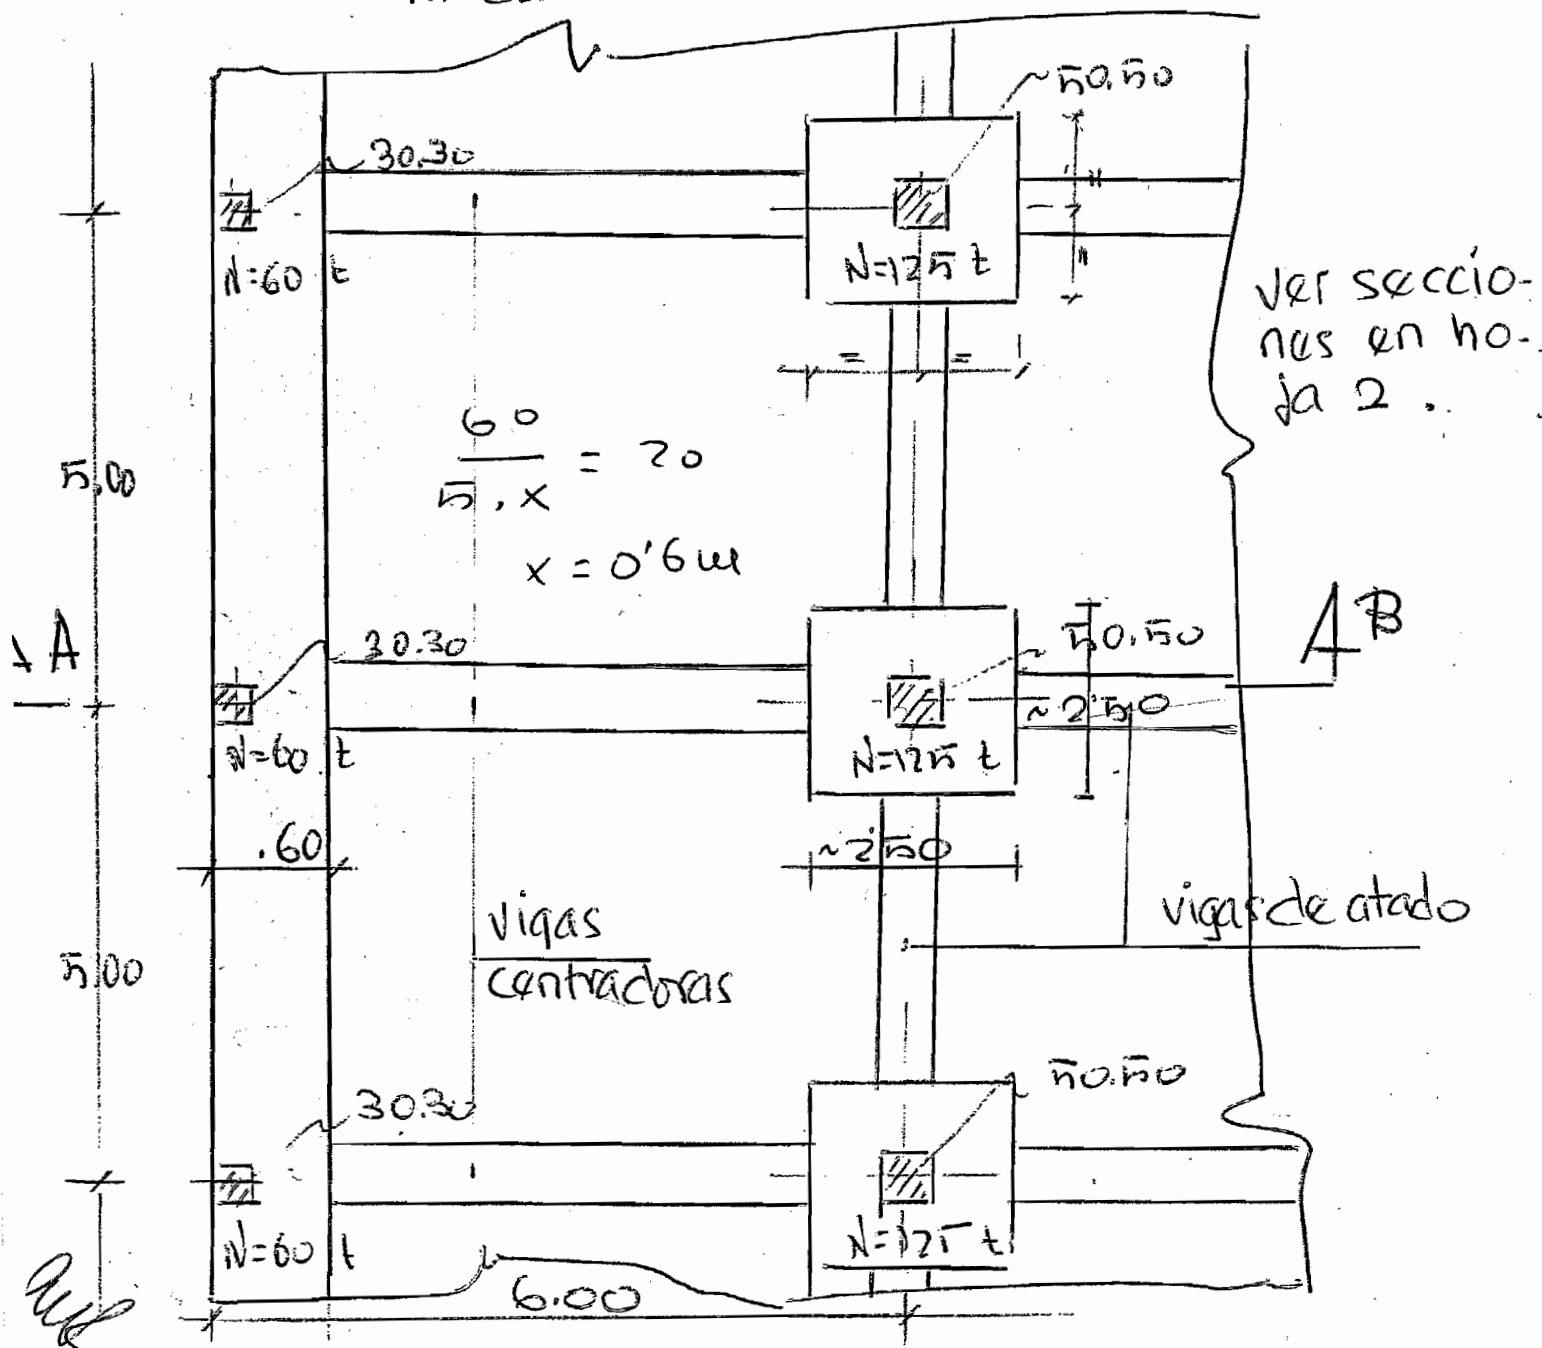 50.50
30.30
N=60 t
N=125 t
ver seccio-
nes en ho-
ja 2.
= =
60
5.x
= 20
x = 0'6 m
5.00
A
30.30
50.50
B
~2'50
N=60 t
N=125 t
.60
~2'50
vigas de atado
vigas
centradoras
5.00
50.50
30.30
N=60 t
N=125 t
6.00